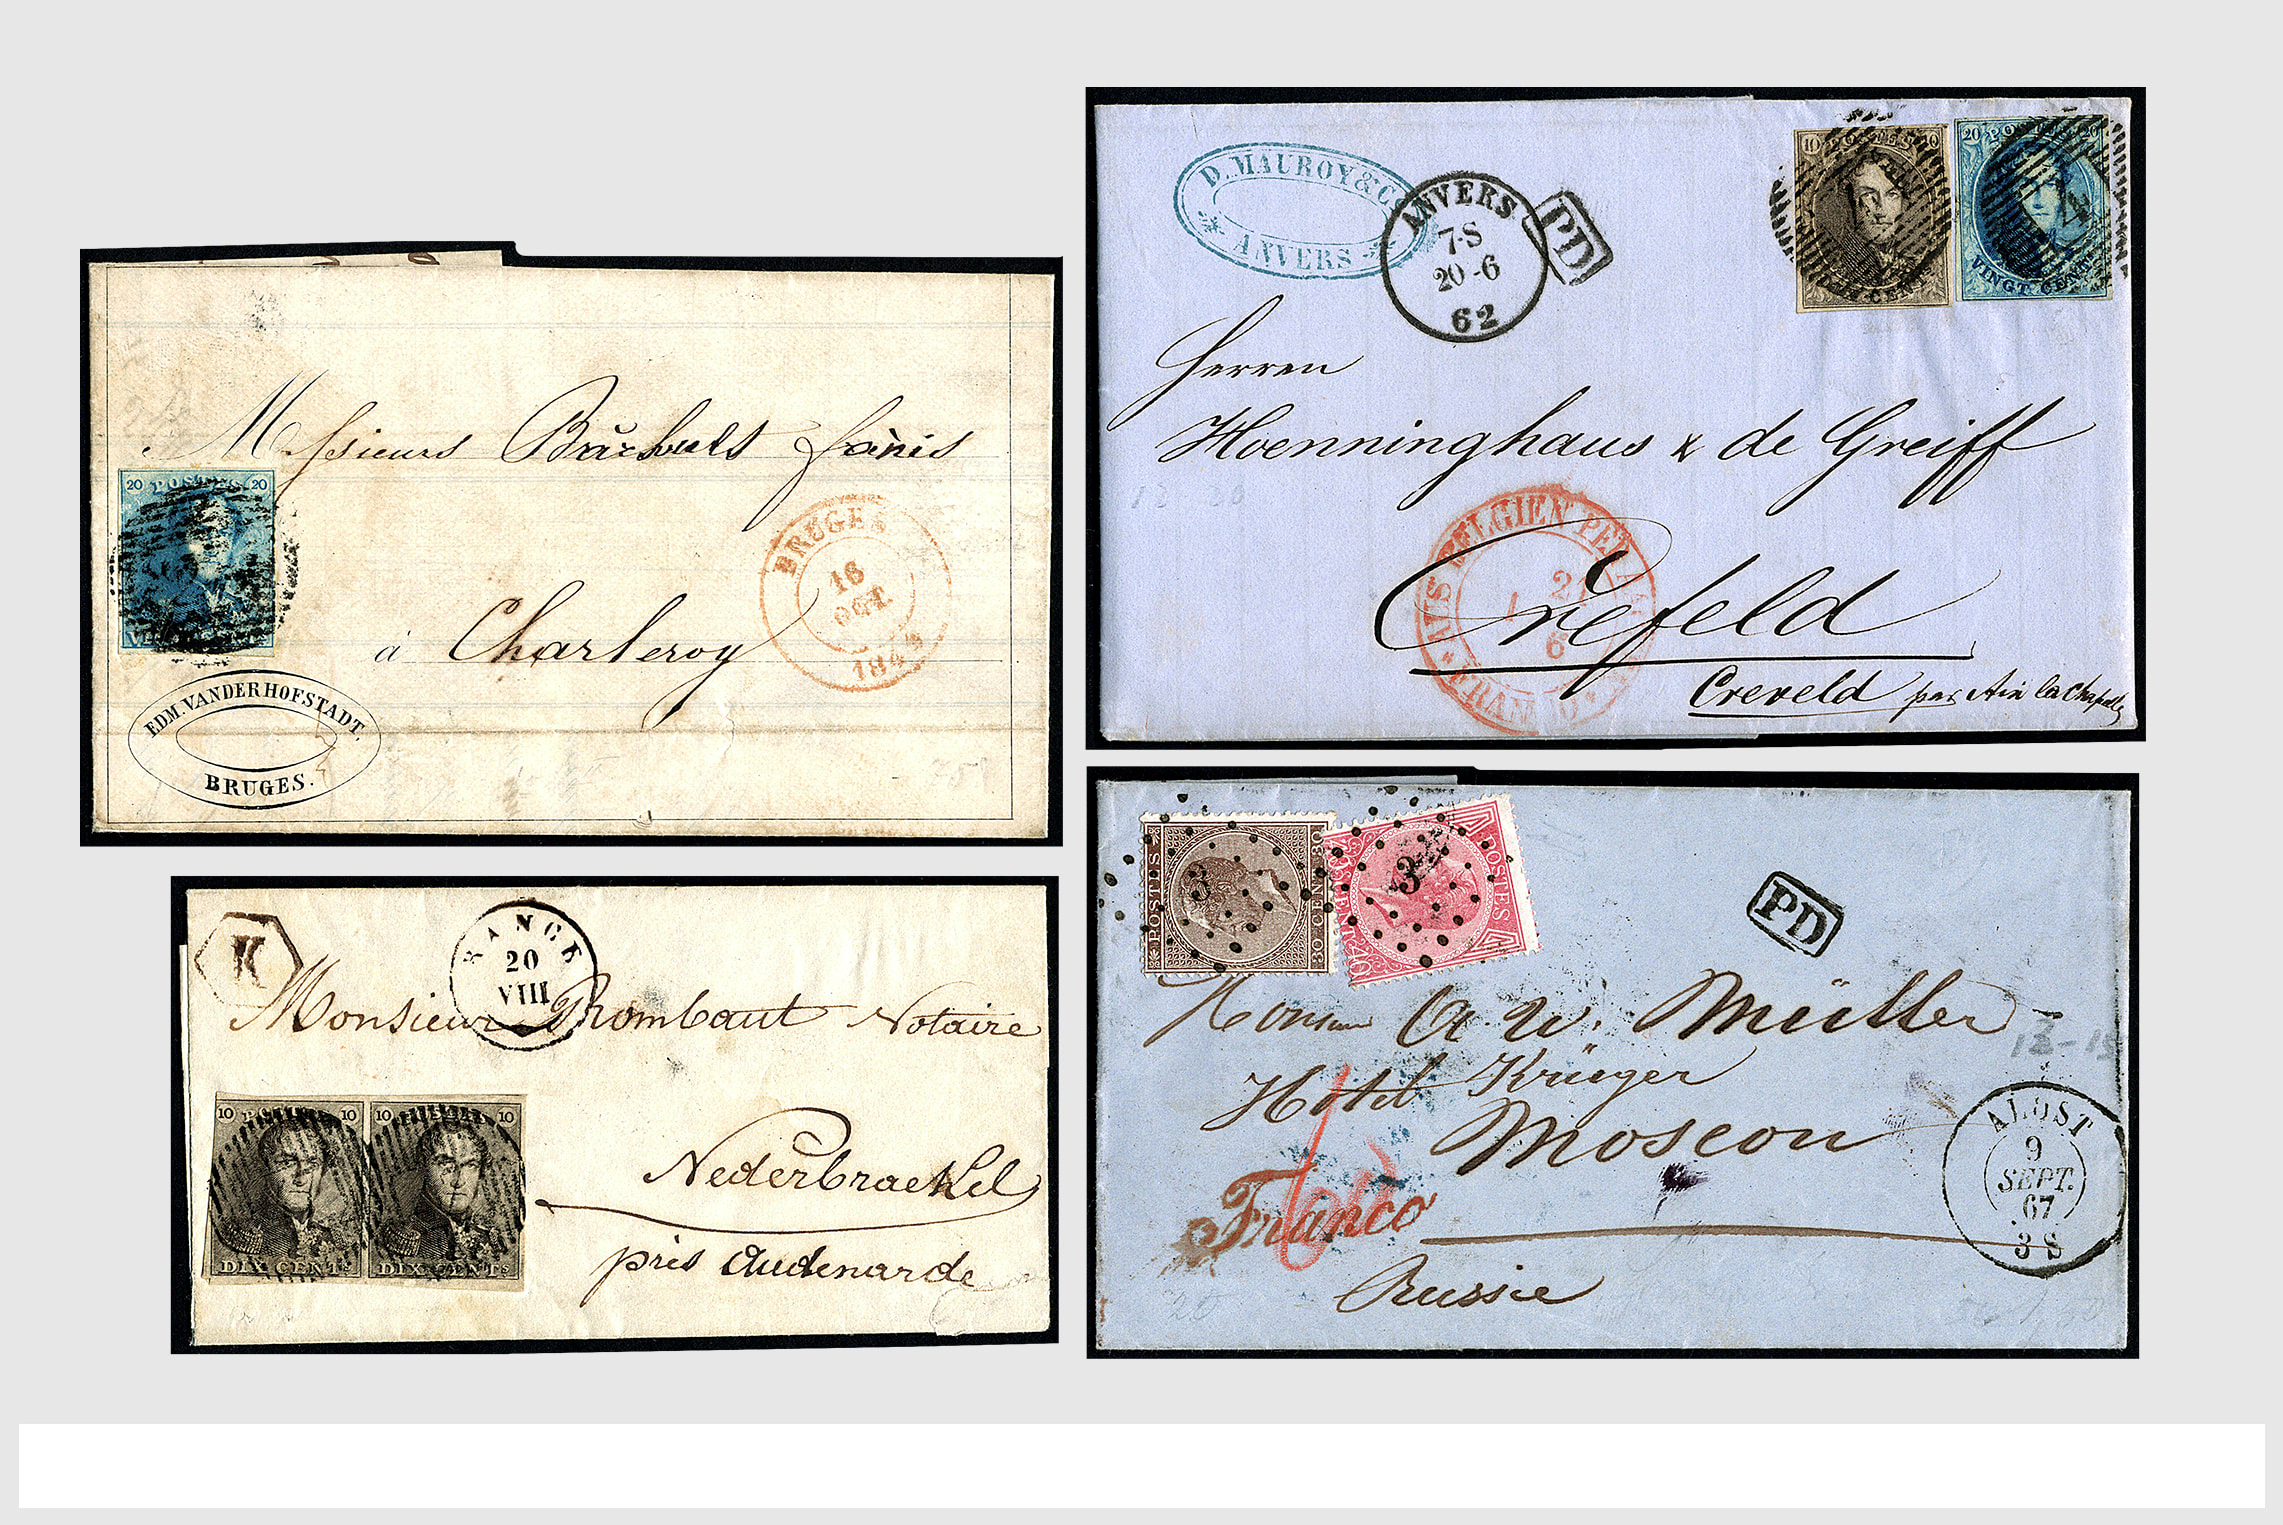 20 POSTES 20
Messieurs
à Charleroy
BRUGES
16
OCT.
EDM. VANDERHOFSTADT.
BRUGES.
D. MAUROY & Co
ANVERS
ANVERS
7·S
20-6
62
PD
10 POSTES 10
20 POSTES 20
VINGT CENTS
Herren
Hoenninghaus & de Greiff
Crefeld
Creveld par Aix la Chapelle
AUS BELGIEN PER
21
6
FRANCO
K
20
VIII
Monsieur Rombaut Notaire
10 10
DIX CENTs
10 10
DIX CENTs
Nederbraekel
près Audenarde
POSTES
30 CENT. 30
3
POSTES
40 CENT. 40
3
PD
Monsieur A W. Müller
Hotel Krüger
Moscou
Franco
Russie
12-15
ALOST
9
SEPT.
67
3 S